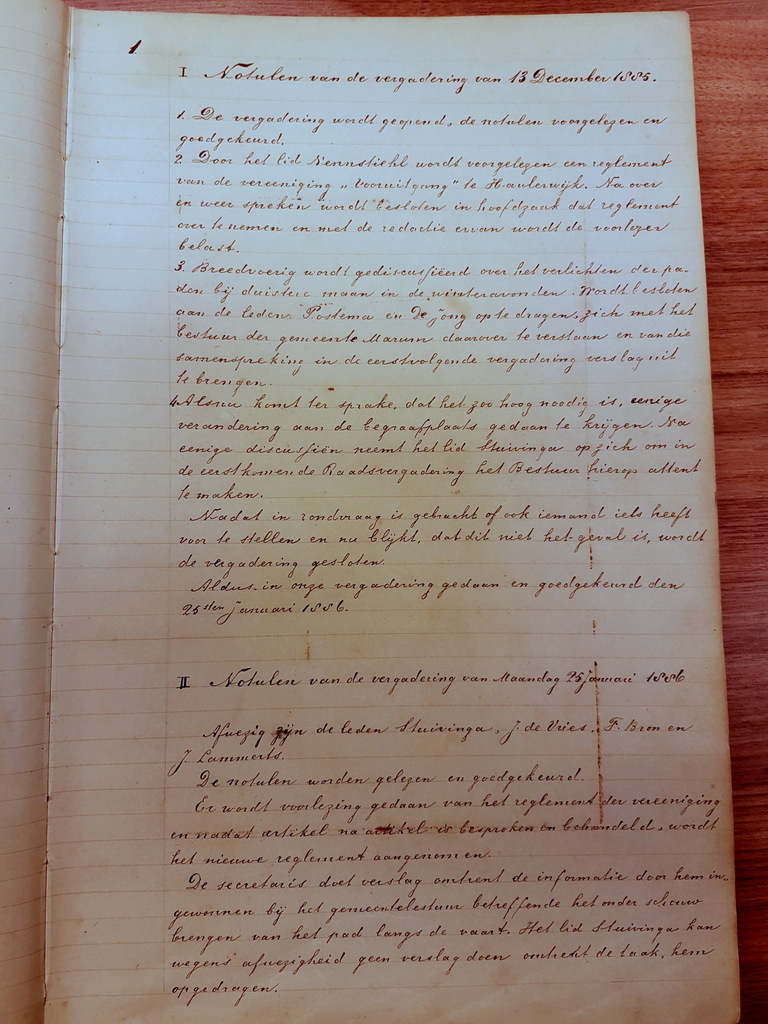 1.
I Notulen van de vergadering van 13 December 1885.
1. De vergadering wordt geopend, de notulen voorgelezen en
goedgekeurd.
2. Door het lid Nennstiehl wordt voorgelezen een reglement
van de vereeniging „Vooruitgang" te Haulerwijk. Na over
en weer spreken wordt besloten in hoofdzaak dat reglement
over te nemen en met de redactie ervan wordt de voorlezer
belast.
3. Breedvoerig wordt gediscussiëerd over het verlichten der pa-
den bij duistere maan in de winteravonden. Wordt besloten
aan de leden Postema en De Jong op te dragen, zich met het
bestuur der gemeente Marum daarover te verstaan en van die
samenspreking in de eerstvolgende vergadering verslag uit
te brengen.
4. Alsnu komt ter sprake, dat het zoo hoog noodig is, eenige
verandering aan de begraafplaats gedaan te krijgen. Na
eenige discussiën neemt het lid Stuivinga op zich om in
de eerstkomende Raadsvergadering het Bestuur hierop attent
te maken.
Nadat in rondvraag is gebracht of ook iemand iets heeft
voor te stellen en nu blijkt, dat dit niet het geval is, wordt
de vergadering gesloten.
Aldus in onze vergadering gedaan en goedgekeurd den
25sten Januari 1886.
II Notulen van de vergadering van Maandag 25 Januari 1886
Afwezig zijn de leden Stuivinga, J. de Vries, F. Bron en
J. Lammerts.
De notulen worden gelezen en goedgekeurd.
Er wordt voorlezing gedaan van het reglement der vereeniging
en nadat artikel na artikel is besproken en behandeld, wordt
het nieuwe reglement aangenomen.
De secretaris doet verslag omtrent de informatie door hem in-
gewonnen bij het gemeentebestuur betreffende het onder schouw
brengen van het pad langs de vaart. Het lid Stuivinga kan
wegens afwezigheid geen verslag doen omtrent de taak, hem
opgedragen.